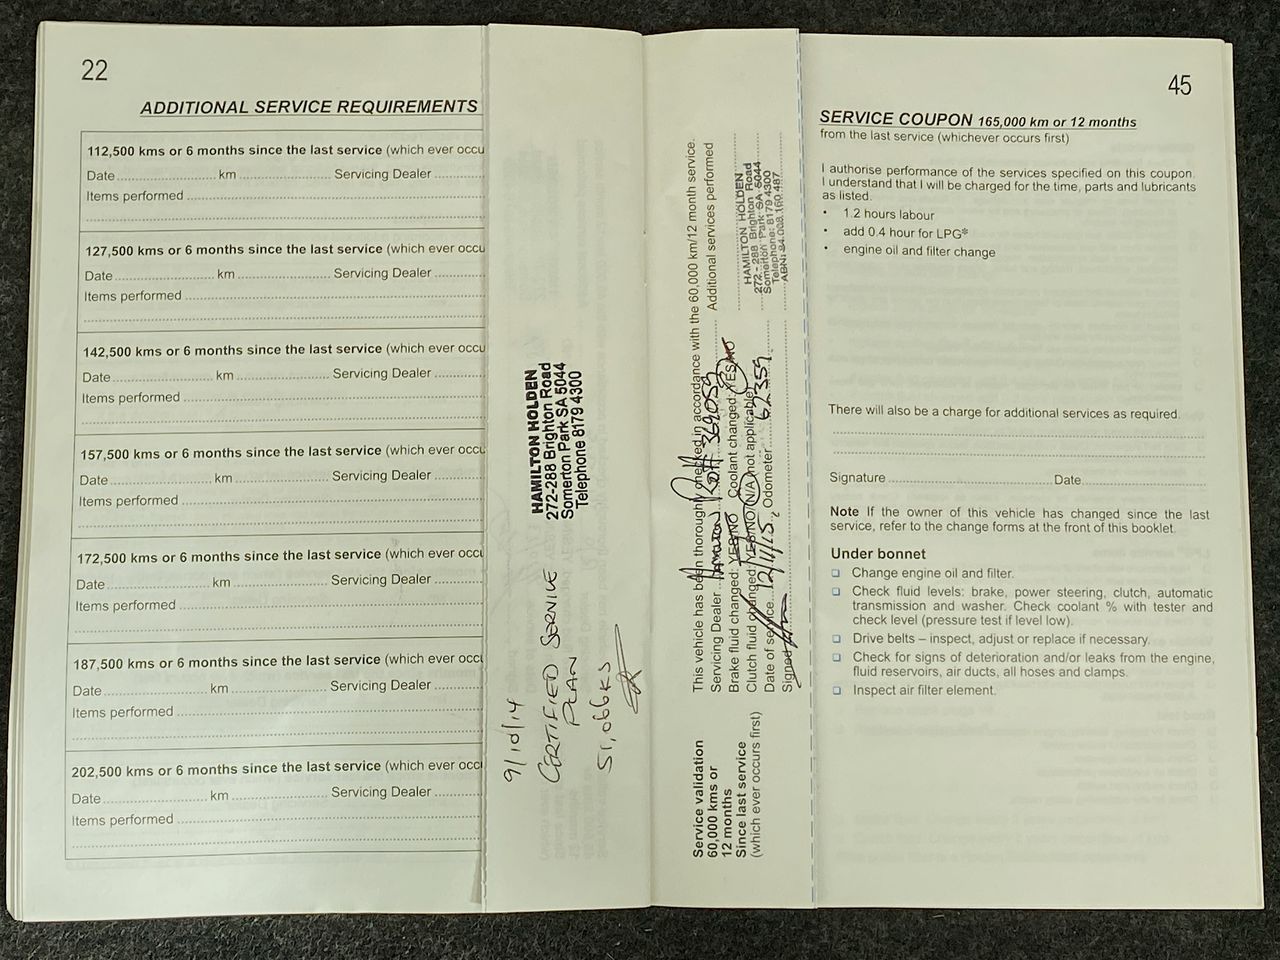 22
ADDITIONAL SERVICE REQUIREMENTS
112,500 kms or 6 months since the last service (which ever occu
Date km Servicing Dealer
Items performed
127,500 kms or 6 months since the last service (which ever occu
Date km Servicing Dealer
Items performed
142,500 kms or 6 months since the last service (which ever occu
Date km Servicing Dealer
Items performed
157,500 kms or 6 months since the last service (which ever occu
Date km Servicing Dealer
Items performed
172,500 kms or 6 months since the last service (which ever occu
Date km Servicing Dealer
Items performed
187,500 kms or 6 months since the last service (which ever occ
Date km Servicing Dealer
Items performed
202,500 kms or 6 months since the last service (which ever occ
Date km Servicing Dealer
Items performed
9/10/14
CERTIFIED SERVICE
PLAN
51,066KS
HAMILTON HOLDEN
272-288 Brighton Road
Somerton Park SA 5044
Telephone 8179 4300
Service validation
60,000 kms or
12 months
Since last service
(which ever occurs first)
This vehicle has been thoroughly checked in accordance with the 60,000 km/12 month service.
Servicing Dealer HAMILTON 369059 Additional services performed
Brake fluid changed: YES/NO Coolant changed: YES/NO
Clutch fluid changed: YES/NO/N/A (not applicable)
Date of service 12/11/15 Odometer 62359
Signed
HAMILTON HOLDEN
272-288 Brighton Road
Somerton Park SA 5044
Telephone: 8179 4300
ABN: 84 008 160 487
45
SERVICE COUPON 165,000 km or 12 months
from the last service (whichever occurs first)
I authorise performance of the services specified on this coupon.
I understand that I will be charged for the time, parts and lubricants
as listed.
• 1.2 hours labour
• add 0.4 hour for LPG*
• engine oil and filter change
There will also be a charge for additional services as required.
Signature Date
Note If the owner of this vehicle has changed since the last
service, refer to the change forms at the front of this booklet.
Under bonnet
❑ Change engine oil and filter.
❑ Check fluid levels: brake, power steering, clutch, automatic
transmission and washer. Check coolant % with tester and
check level (pressure test if level low).
❑ Drive belts – inspect, adjust or replace if necessary.
❑ Check for signs of deterioration and/or leaks from the engine,
fluid reservoirs, air ducts, all hoses and clamps.
❑ Inspect air filter element.